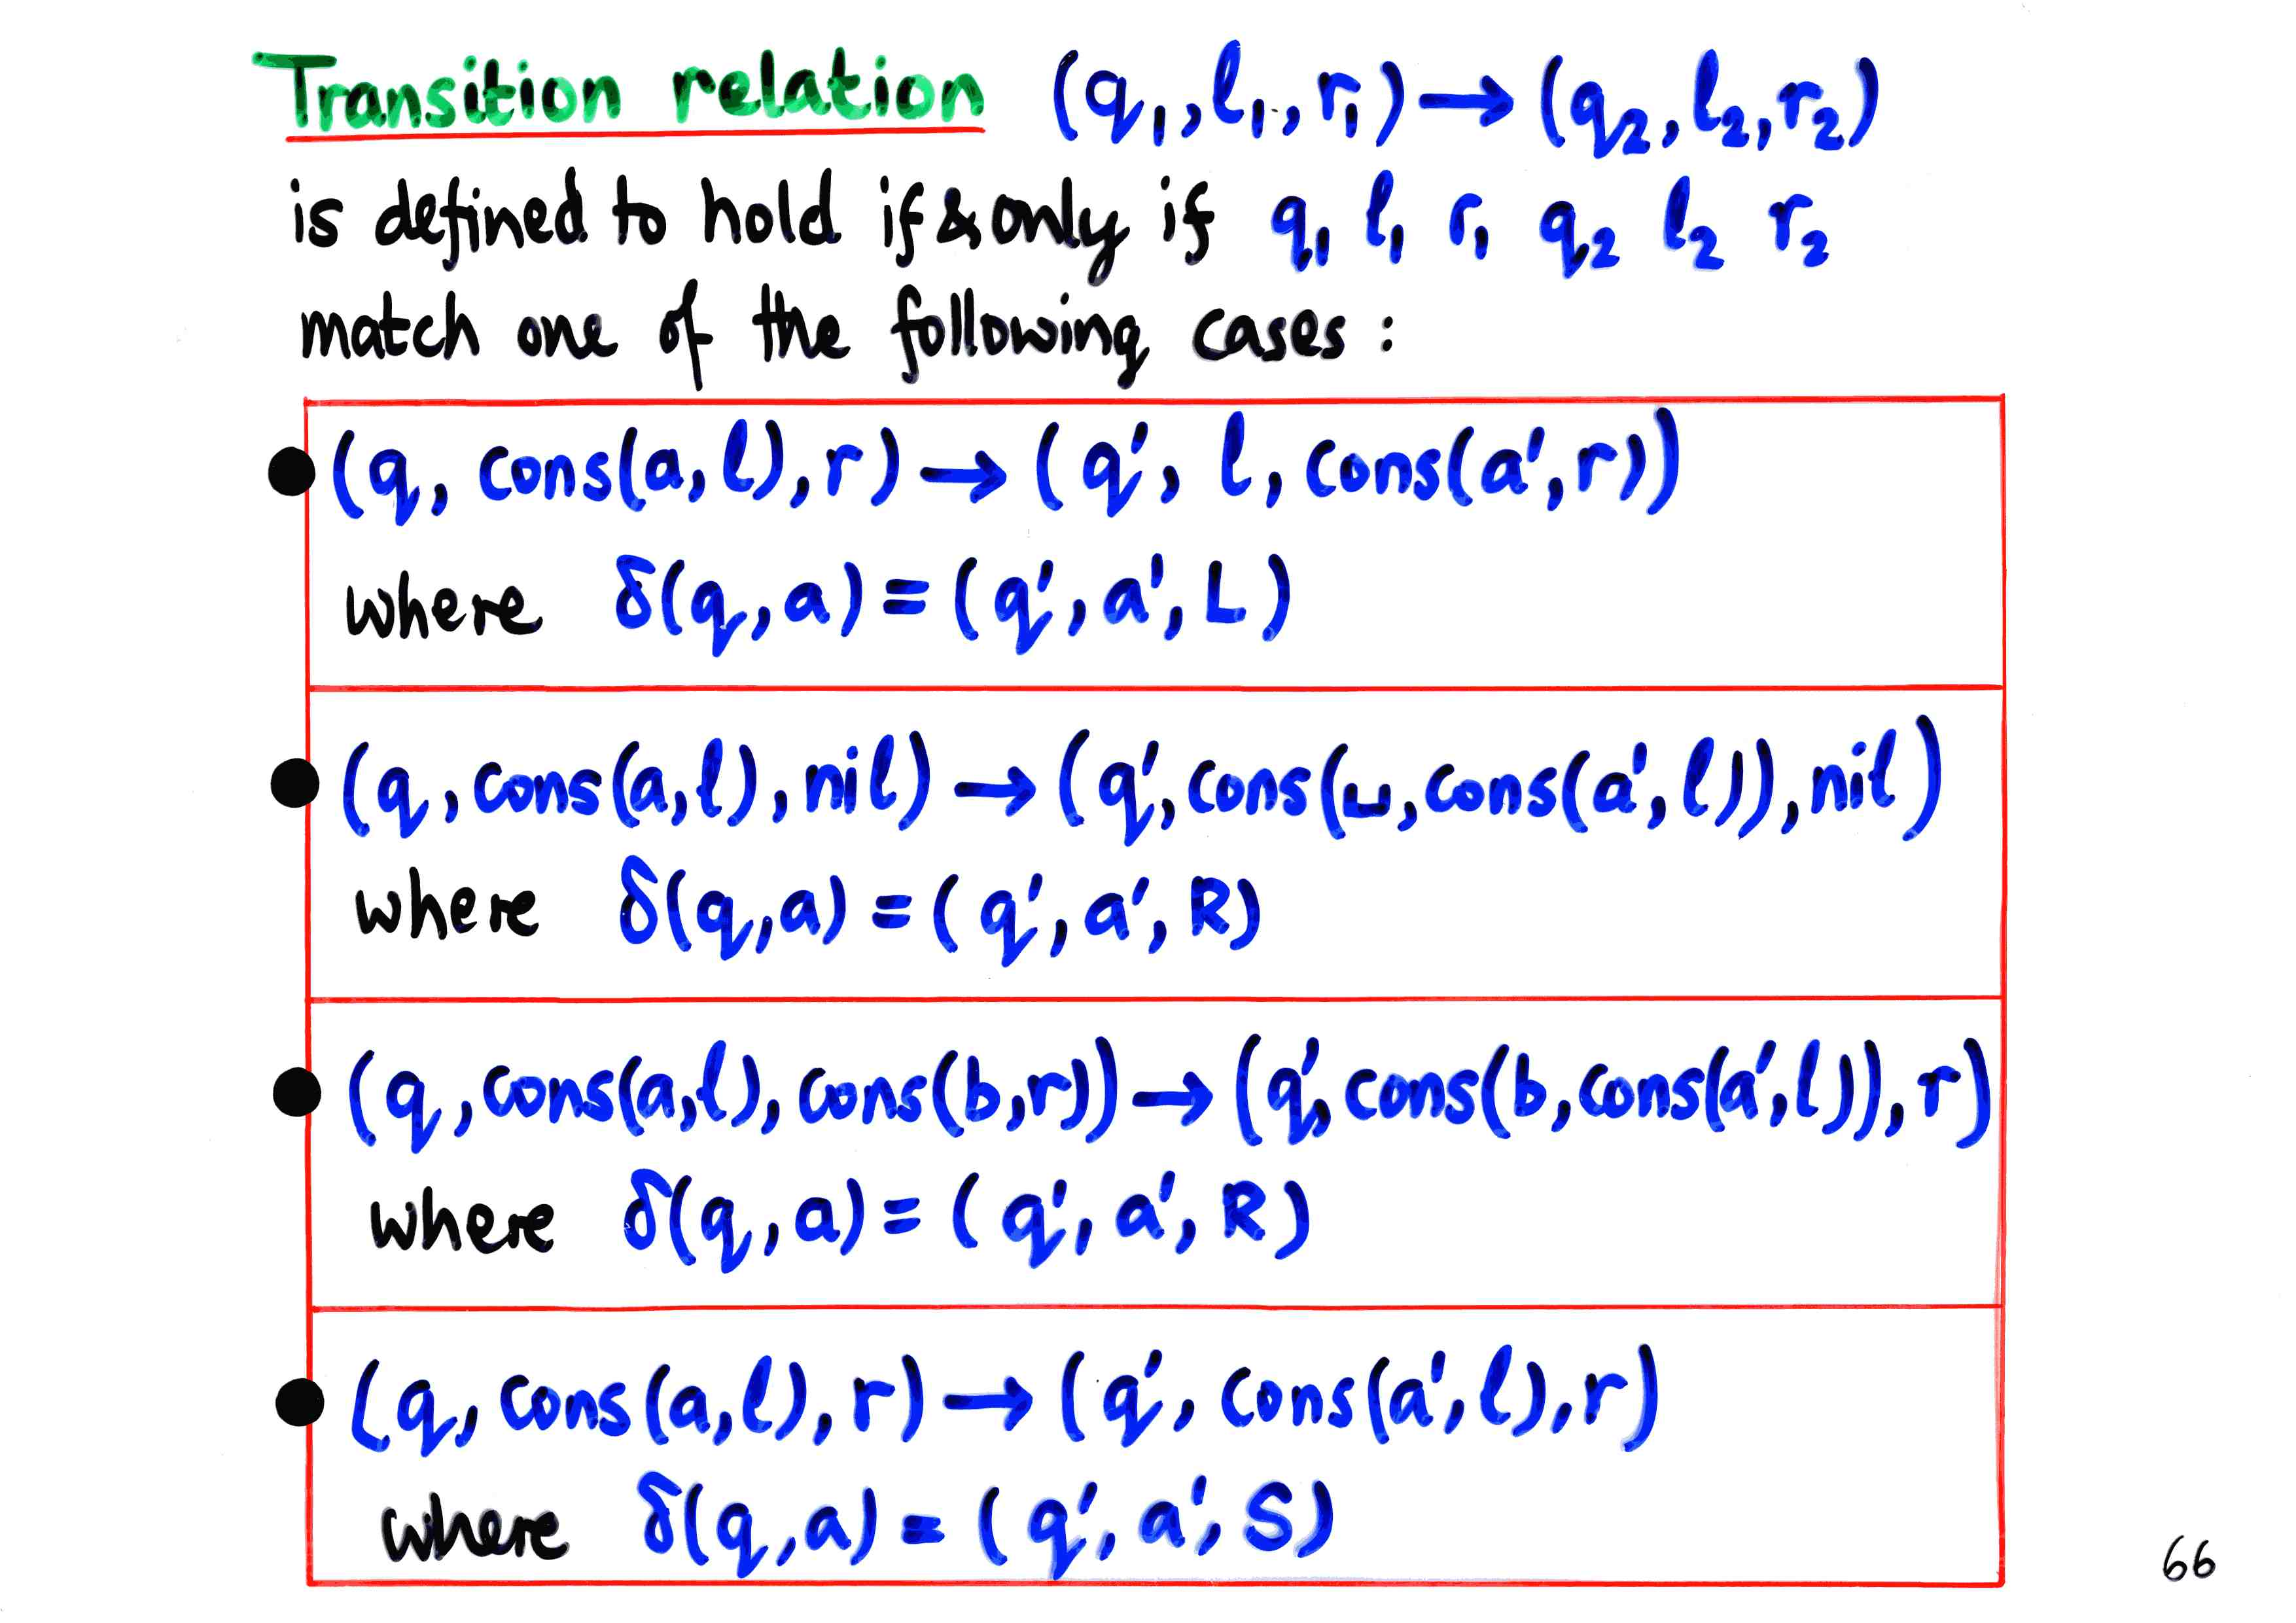 Transition relation (q₁, l₁, r₁) → (q₂, l₂, r₂)
is defined to hold if & only if q₁ l₁ r₁ q₂ l₂ r₂
match one of the following cases :
● (q, cons(a, l), r) → (q', l, cons(a', r))
where δ(q, a) = (q', a', L)
● (q, cons(a, l), nil) → (q', cons(␣, cons(a', l)), nil)
where δ(q, a) = (q', a', R)
● (q, cons(a, l), cons(b, r)) → (q', cons(b, cons(a', l)), r)
where δ(q, a) = (q', a', R)
● (q, cons(a, l), r) → (q', cons(a', l), r)
where δ(q, a) = (q', a', S)
66